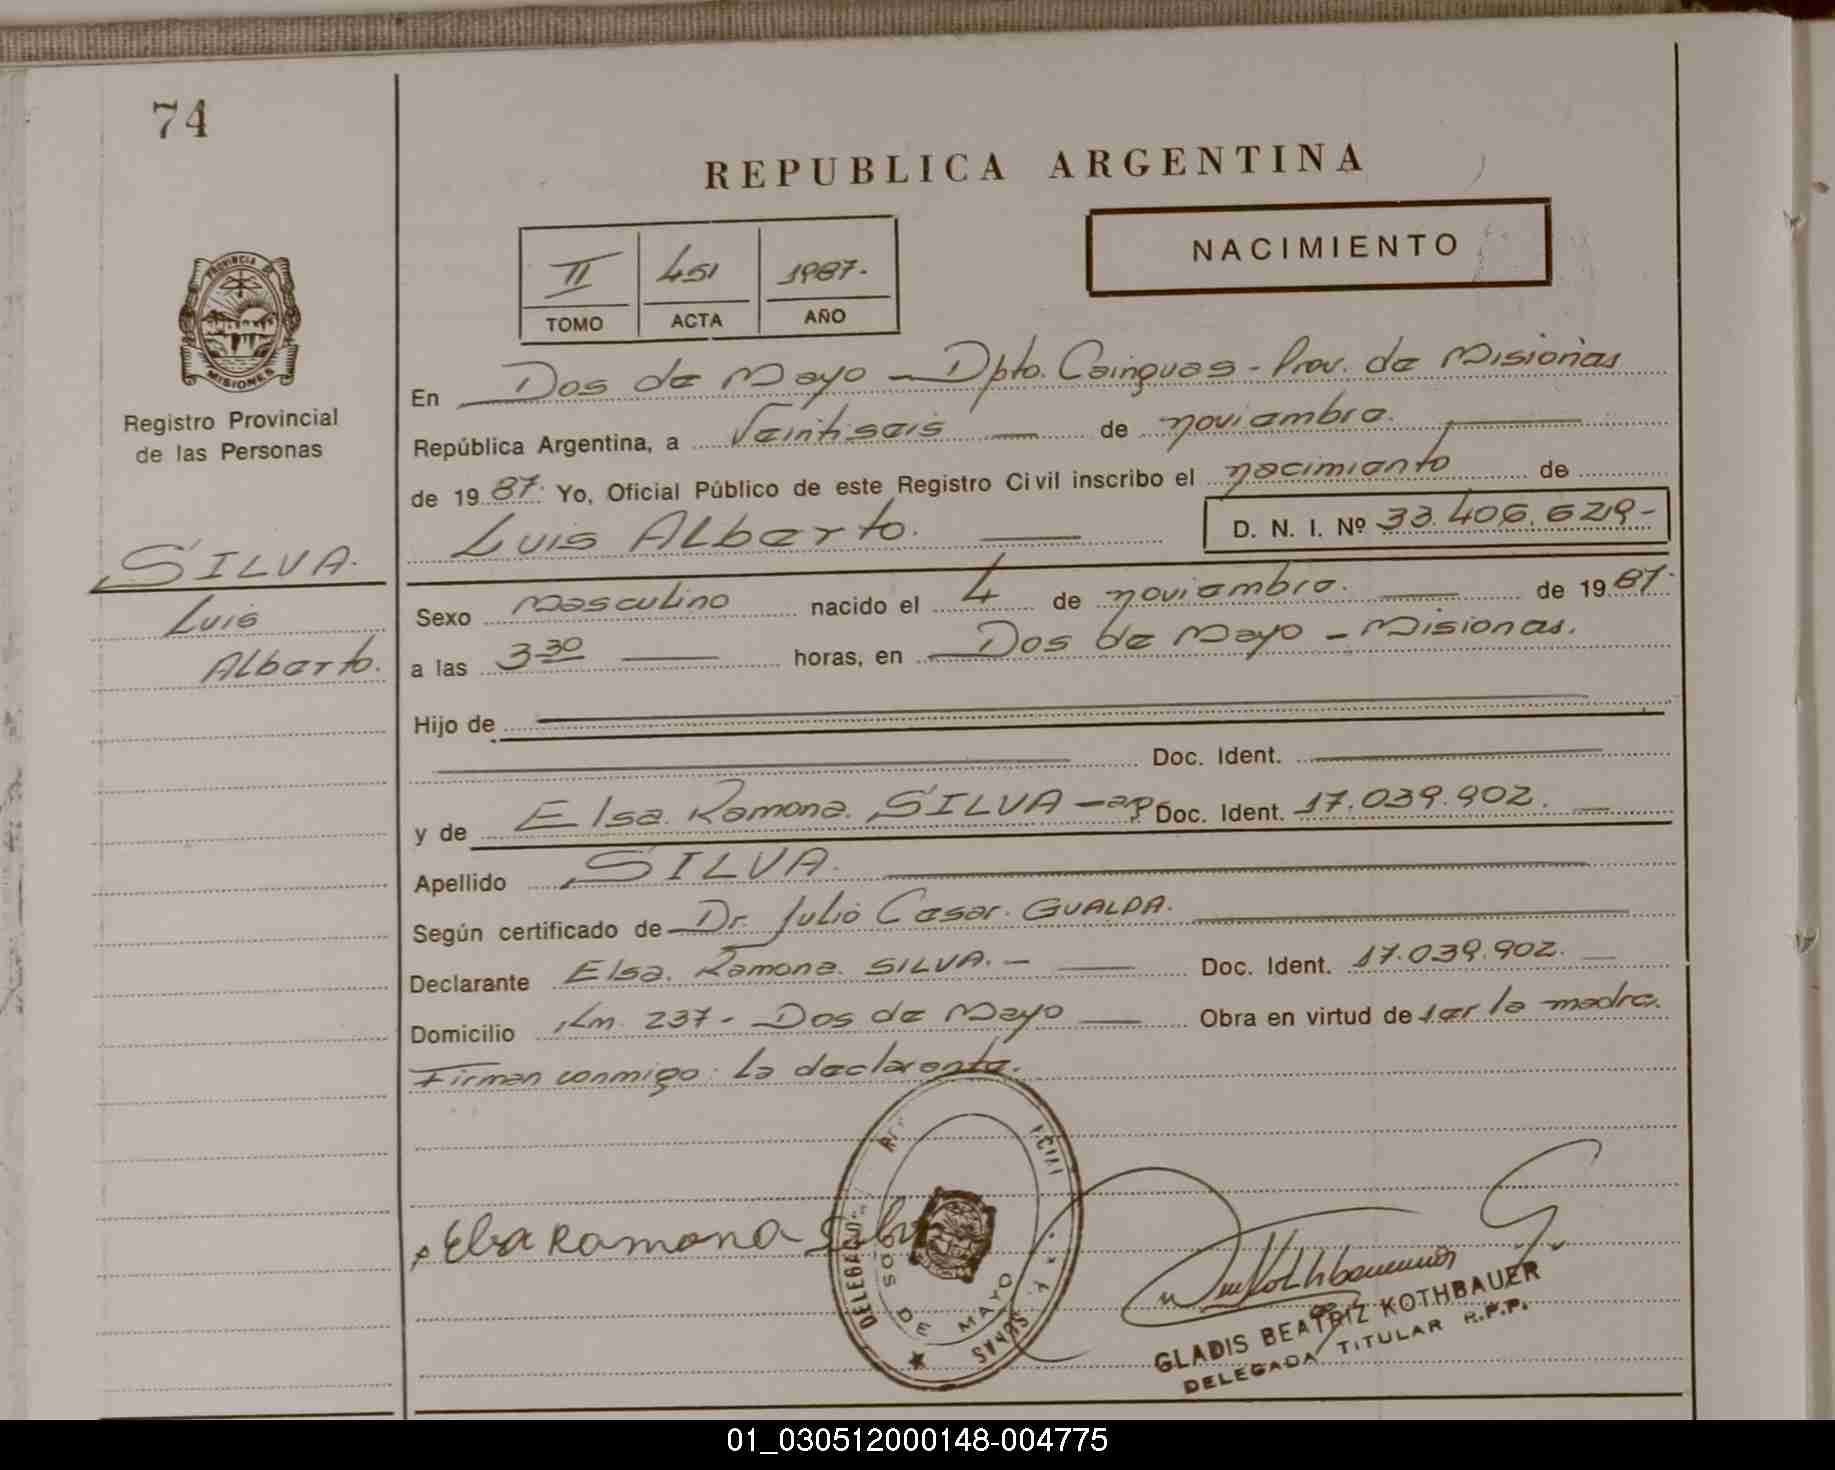 74
REPUBLICA ARGENTINA
NACIMIENTO
II 451 1987.
TOMO ACTA AÑO
PROVINCIA DE
MISIONES
Registro Provincial
de las Personas
SILVA.
Luis
Alberto.
En Dos de Mayo - Dpto. Cainguas - Prov. de Misiones
República Argentina, a Veintiseis de noviembre.
de 1987. Yo, Oficial Público de este Registro Civil inscribo el nacimiento de
Luis Alberto. D. N. I. Nº 33.406.629-
Sexo masculino nacido el 4 de noviembre. de 1987.
a las 3 30 horas, en Dos de Mayo - Misiones.
Hijo de
Doc. Ident.
y de Elsa Ramona SILVA - Doc. Ident. 17.039.902.
Apellido SILVA.
Según certificado de Dr. Julio Cesar GUALDA.
Declarante Elsa Ramona SILVA. - Doc. Ident. 17.039.902.
Domicilio Km. 237 - Dos de Mayo Obra en virtud de ser la madre.
Firman conmigo: la declarante.
Elsa Ramona Silva
DOS DE MAYO
GLADIS BEATRIZ KOTHBAUER
DELEGADA TITULAR R.P.P.
01_030512000148-004775